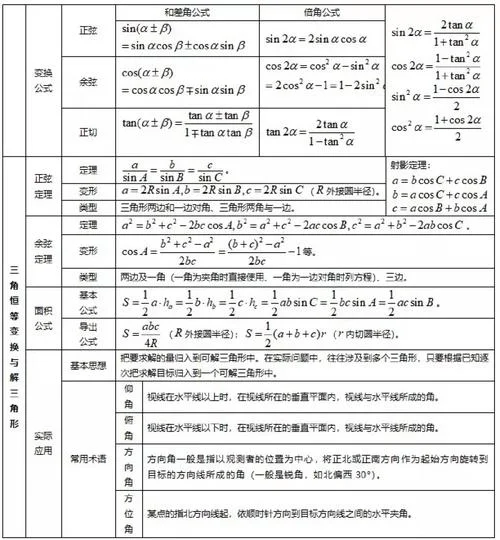 和差角公式 倍角公式
正弦
sin(α±β)
=sinαcosβ±cosαsinβ
sin2α=2sinαcosα
变换
公式
余弦
cos(α±β)
=cosαcosβ∓sinαsinβ
cos2α=cos²α-sin²α
=2cos²α-1=1-2sin²
正切
tan(α±β)=(tanα±tanβ)/(1∓tanαtanβ)
tan2α=2tanα/(1-tan²α)
sin2α=2tanα/(1+tan²α)
cos2α=(1-tan²α)/(1+tan²α)
sin²α=(1-cos2α)/2
cos²α=(1+cos2α)/2
三角恒等变换与解三角形
正弦
定理
定理 a/sinA=b/sinB=c/sinC。
变形 a=2RsinA,b=2RsinB,c=2RsinC(R外接圆半径)。
类型 三角形两边和一边对角、三角形两角与一边。
射影定理:
a=bcosC+ccosB
b=acosC+ccosA
c=acosB+bcosA
余弦
定理
定理 a²=b²+c²-2bccosA,b²=a²+c²-2accosB,c²=a²+b²-2abcosC。
变形 cosA=(b²+c²-a²)/2bc=((b+c)²-a²)/2bc-1等。
类型 两边及一角(一角为夹角时直接使用、一角为一边对角时列方程)、三边。
面积
公式
基本
公式
S=1/2a·hₐ=1/2b·h_b=1/2c·h_c=1/2absinC=1/2bcsinA=1/2acsinB。
导出
公式
S=abc/4R(R外接圆半径);S=1/2(a+b+c)r(r内切圆半径)。
实际
应用
基本思想
把要求解的量归入到可解三角形中。在实际问题中,往往涉及到多个三角形,只要根据已知逐
次把求解目标归入到一个可解三角形中。
常用术语
仰
角
视线在水平线以上时,在视线所在的垂直平面内,视线与水平线所成的角。
俯
角
视线在水平线以下时,在视线所在的垂直平面内,视线与水平线所成的角。
方
向
角
方向角一般是指以观测者的位置为中心,将正北或正南方向作为起始方向旋转到
目标的方向线所成的角(一般是锐角,如北偏西30°)。
方
位
角
某点的指北方向线起,依顺时针方向到目标方向线之间的水平夹角。